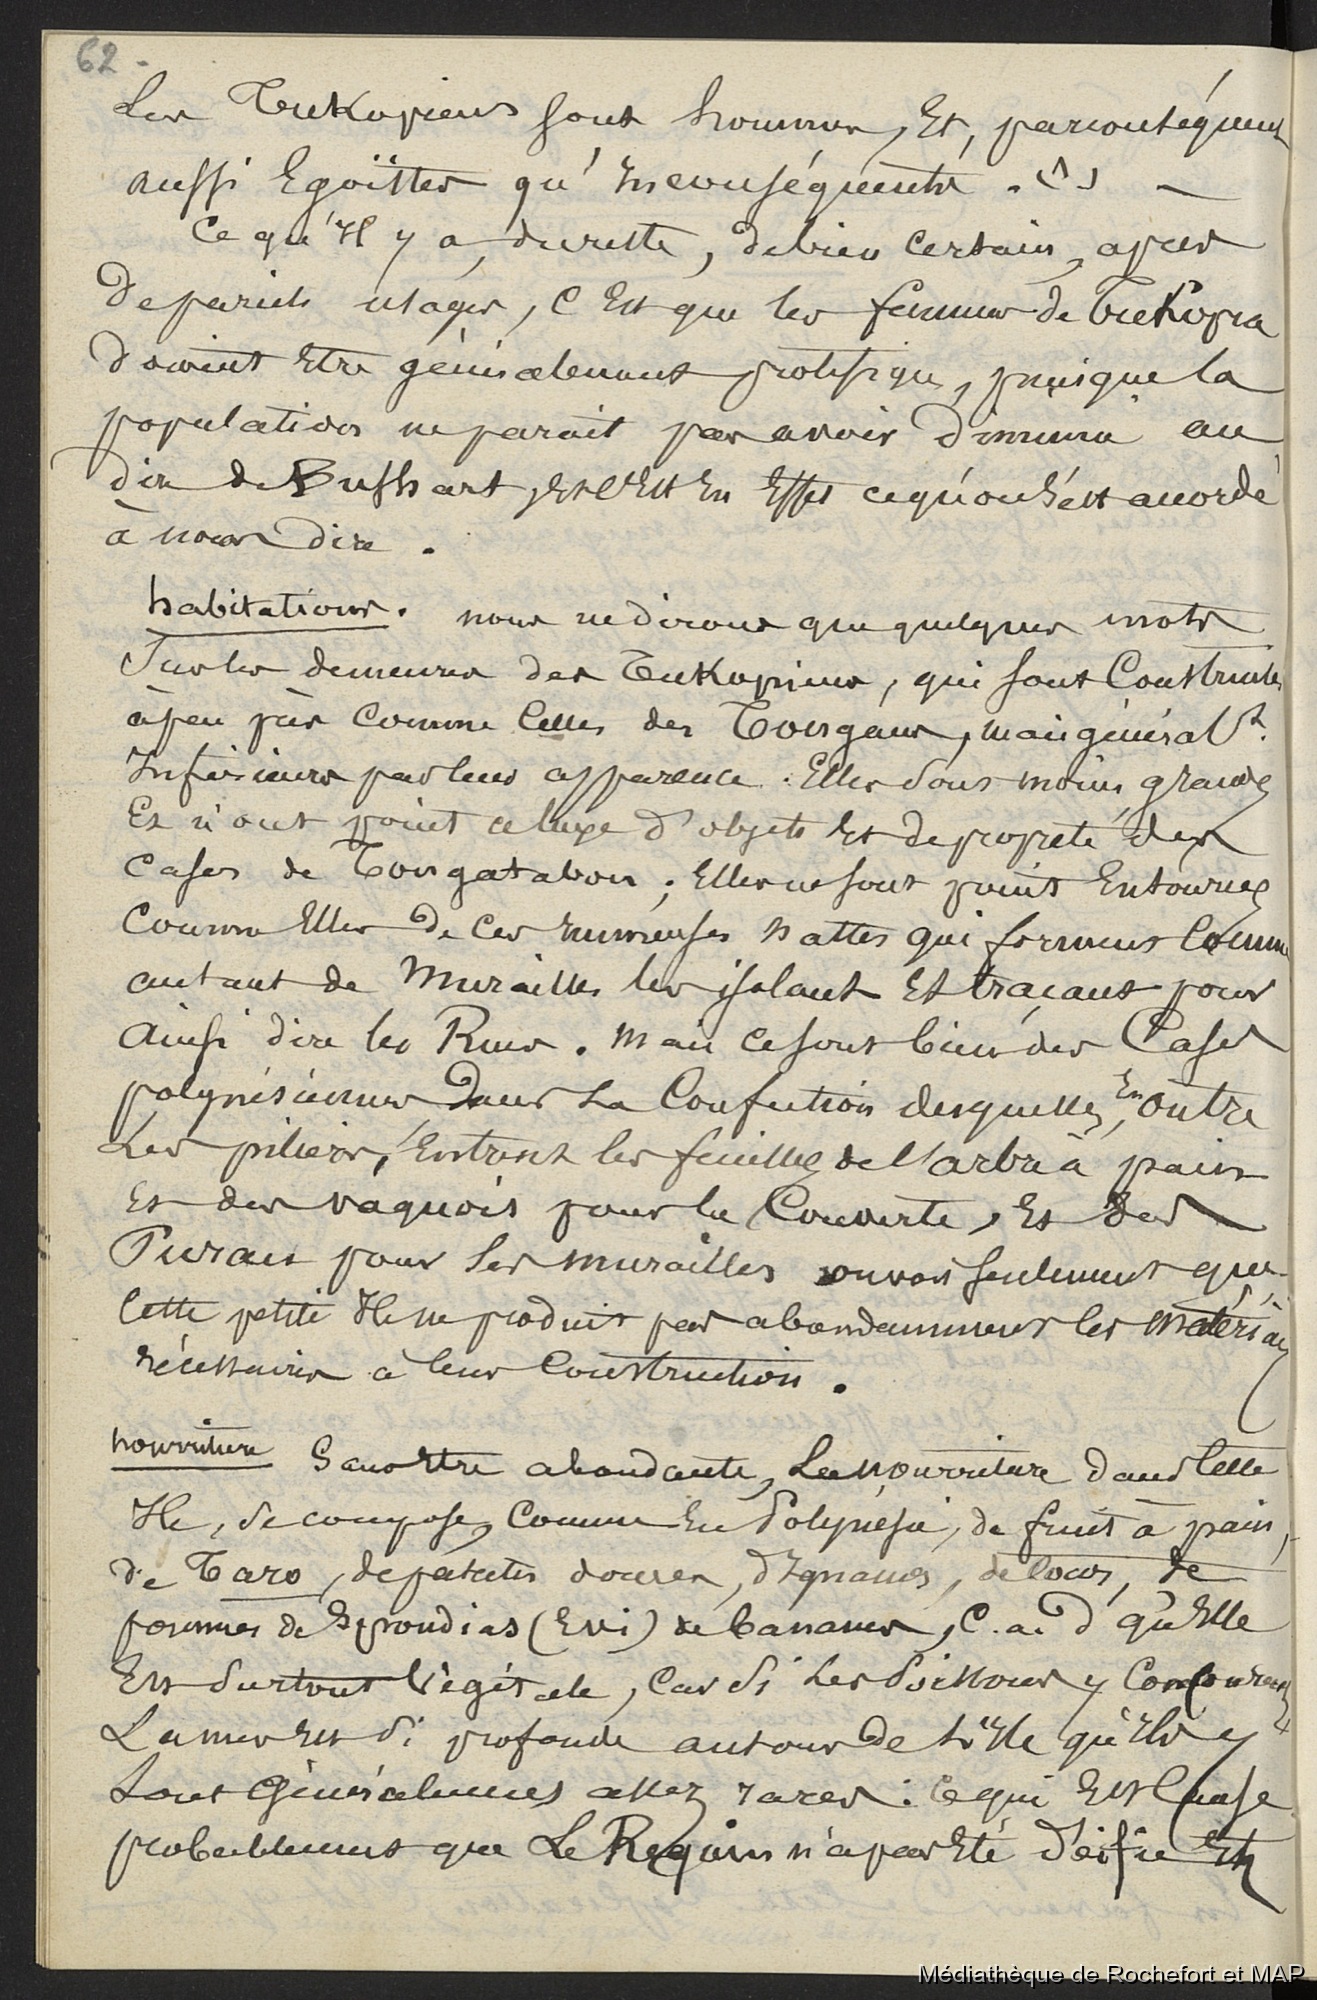 62.
Les Tukopiens sont hommes, Et, par conséquent
aussi Egoïstes qu'Inconséquents. (1) —
Ce qu'Il y a, du reste, de bien certain, après
de pareils usages, C'Est que les femmes de Tukopia
doivent Etre généralement prolifiques, puisque la
population ne parait pas avoir diminué au
dire de Bushart, Et c'Est En Effet ce qu'on s'est accordé
à nous dire.
habitations. nous ne dirons que quelques mots
Sur les demeures des Tukopiens, qui sont Construites
à peu près Comme Celles des Tongans, mais générалt.
Inférieures par leur apparence. Elles sont moins grandes
Et n'ont point ce luxe d'objets Et de propreté des
Cases de Tongatabou ; Elles ne sont point Entourées
Comme Elles de ces immenses nattes qui forment Comme
autant de Murailles les isolant Et traçant pour
Ainsi dire les Rues. Mais ce sont bien des Cases
polynésiennes dans La Confection desquelles, En outre
Les piliers, Entrent les feuilles de l'arbre à pain
Et des vaquois pour la Couverte, Et des
Purau pour les murailles seulement que
Cette petite Ile ne produit pas abondamment les matériaux
nécessaires à leur Construction.
nourriture Sans Etre abondante, La nourriture dans Cette
Ile, se compose, Comme En Polynésie, de fruit à pain,
de Taro, de patates douces, d'Ignames, de Cocos, de
pommes de Spondias (Evi) de bananes, C. a. d qu'Elle
Est Surtout Végétale, Car si Les Poissons y Concourent
La mer Est si profonde autour de L'Ile qu'Ils y
Sont Généralement assez rares : Ce qui Est Cause
probablement que Le Requin n'a pas Eté déifié Et
Médiathèque de Rochefort et MAP